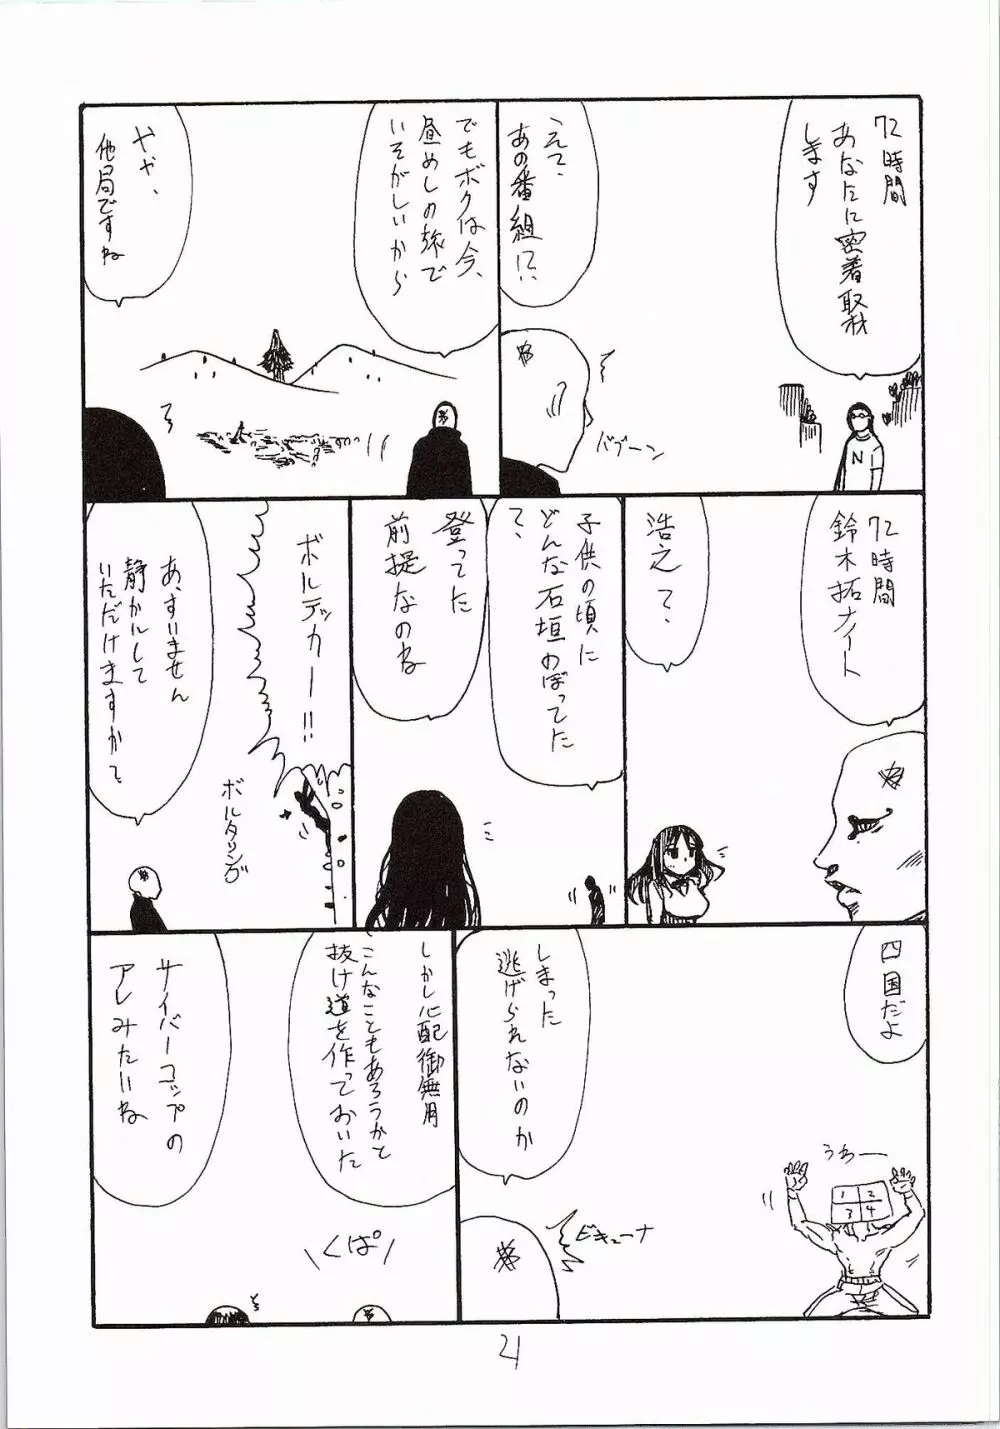 72時間
あなたに密着取材
します
N
えて、
あの番組!?
バブーン
でもボクは今、
昼めしの旅で
いそがしいから
やや、
他局ですね
72時間
鈴木拓ナイト
浩之て、
子供の頃に
どんな石垣のぼってた
て、
登ってた
前提なのね
ボルデッカー!!
ボルタリング
あ、すいません
静かにして
いただけますかて
四国だよ
うわー
1 2
3 4
しまった
逃げられないのか
ビキューナ
しかし心配御無用
こんなこともあろうかと
抜け道を作っておいた
サイバーコップの
アレみたいね
くぱぁ
21